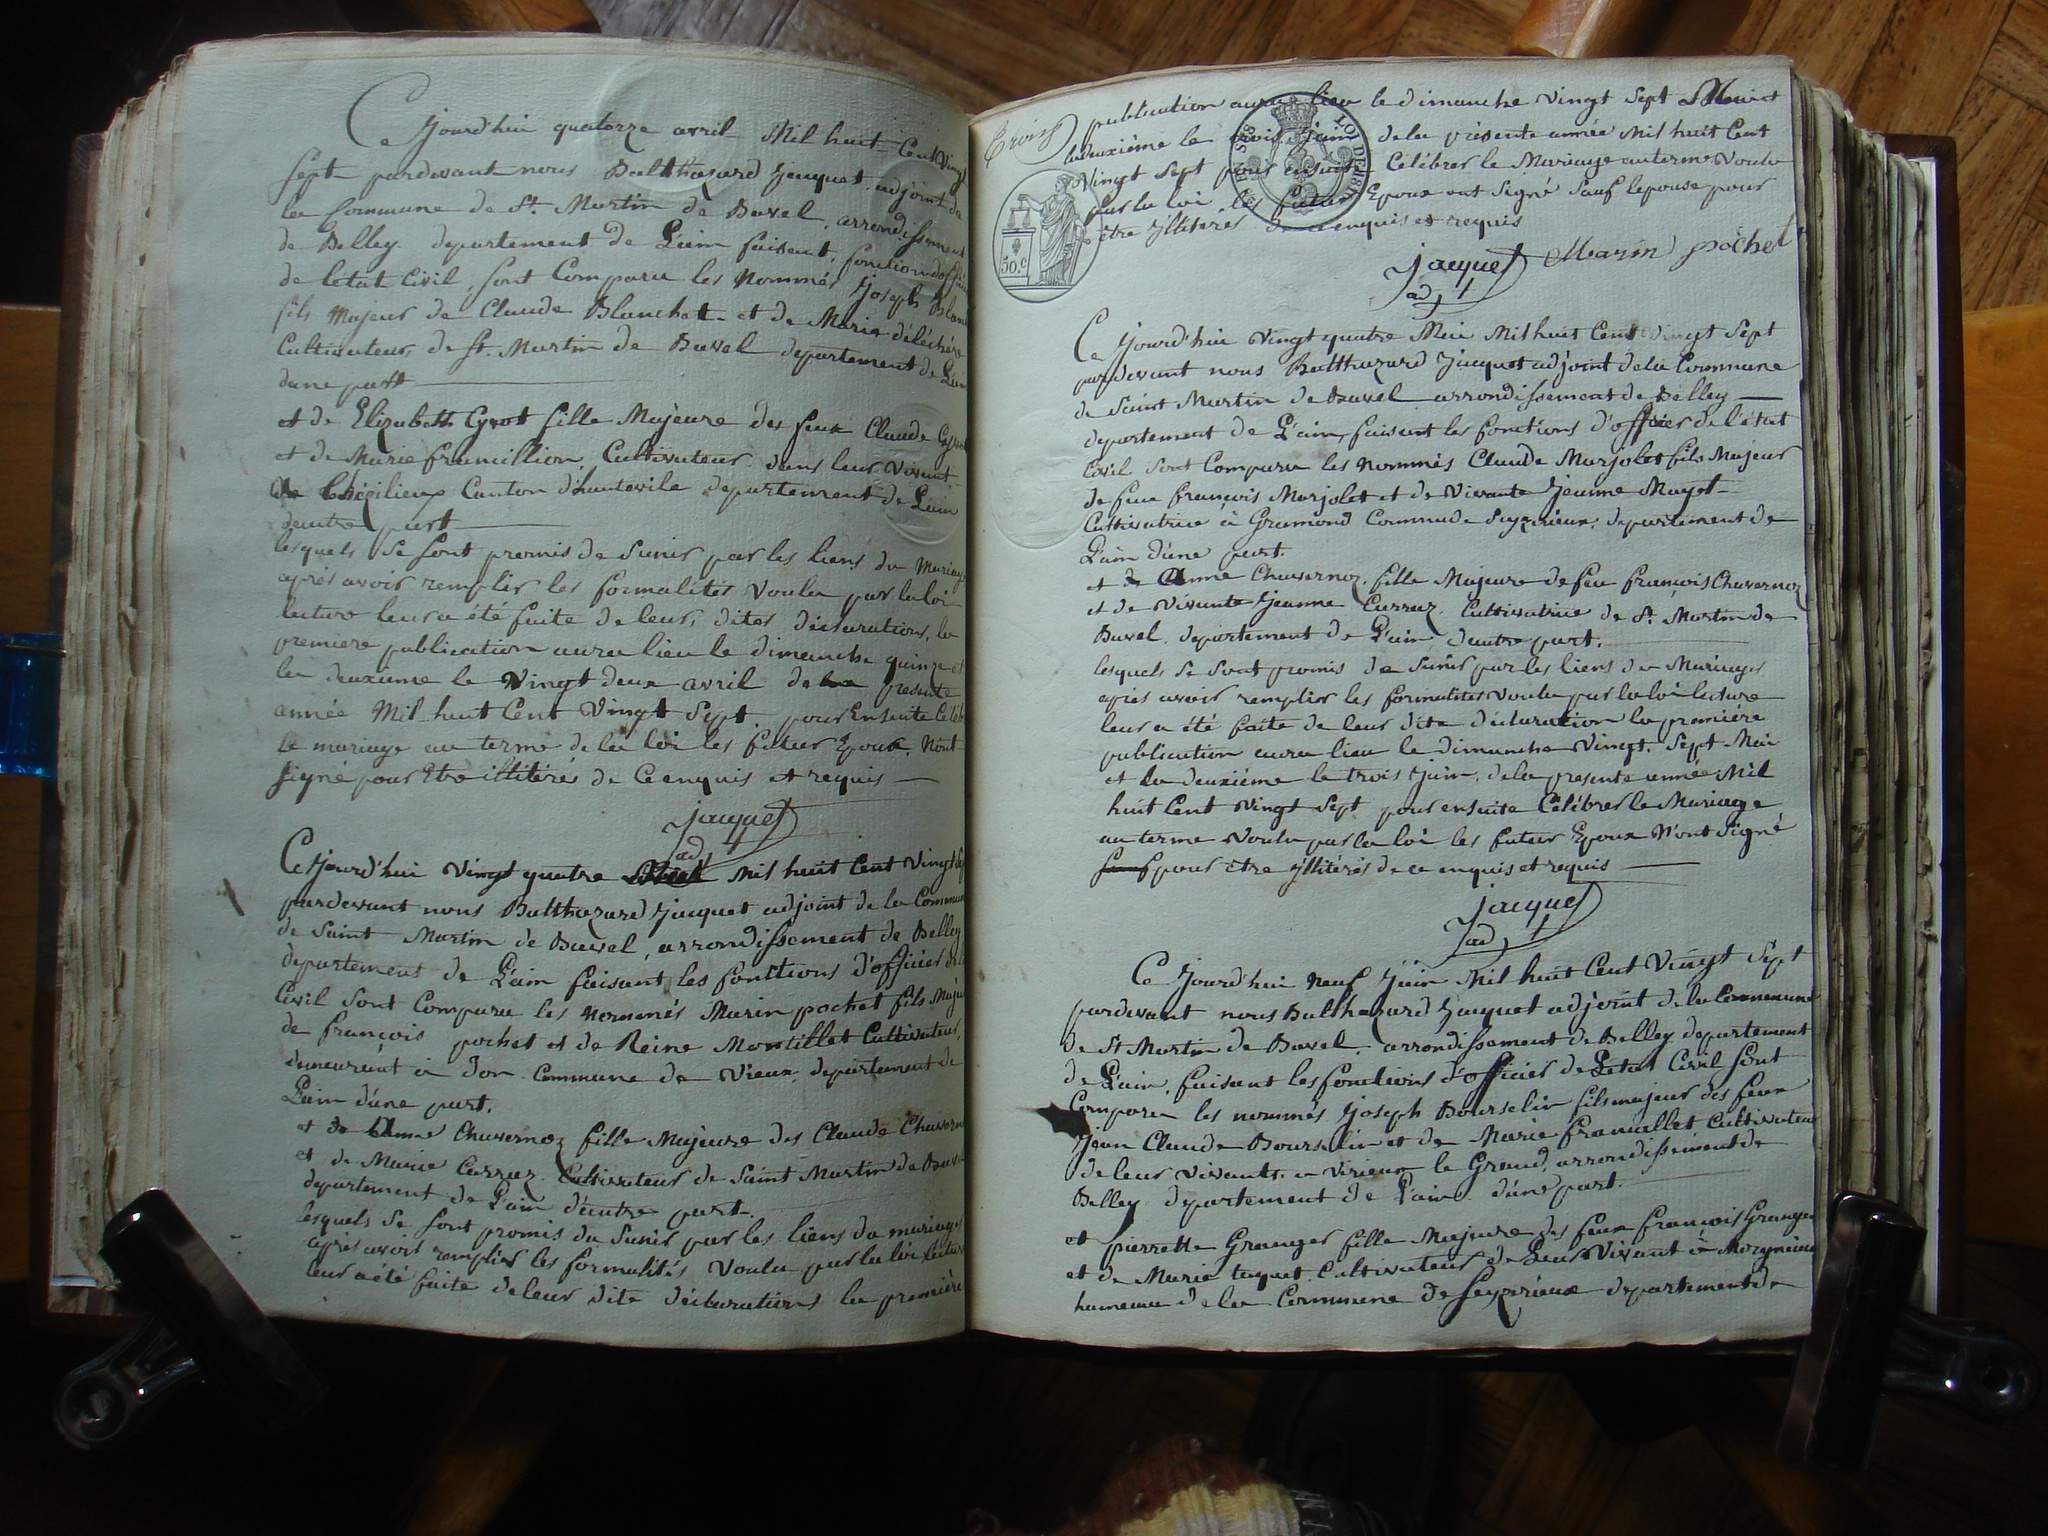 Ce Jourd'hui quatorze avril Mil huit Cent Vingt
Sept pardevant nous Balthazard Jacquet adjoint de
la Commune de St. Martin de Bavel, arrondissement
de Belley departement de L'ain faisant, fonction
de letat Civil, sont Comparu les Nommés Joseph
fils Majeur de Claude Blanchet et de Marie déléchère
Cultivateur, de St. Martin de Bavel departement de L'ain
dune part
et de Elizabeth Gyrot fille Majeure des feux Claude
et de Marie francillion, Cultivateur dans leur Vivant
Canton d'hauteville departement de L'ain
dautre part
lesquels se sont promis de S'unir par les liens du Mariage
après avoir remplier les formalités Voulu par la loi
lecture leur a été faite de leur, dites déclarations, la
premiere publication aura lieu le dimanche quinze et
la deuxieme le Vingt deux avril de presente
année Mil huit Cent Vingt Sept. pour Ensuite
le mariage au terme de la loi les futur Epoux, N'ont
signé pour Etre illitérés de Ce enquis et requis
Jacquet
adjt
Ce Jourd'hui Vingt quatre Mil huit Cent Vingt
pardevant nous Balthazard Jacquet adjoint de la Commune
de Saint Martin de Bavel, arrondissement de Belley
departement de L'ain faisant les fonctions d'officier
Civil sont Comparu les Nommés Marin pochet fils
de françois pochet et de Reine Montillet Cultivateur,
demeurant à Don Commune de Vieux, departement de
L'ain d'une part.
et de Anne Chavernoz fille Majeure des Claude
et de Marie Carraz Cultivateur de Saint Martin de
departement de L'ain d'autre part.
lesquels se sont promis du S'unir par les liens du mariage
après avoir remplier les formalités Voulu par la loi lecture
leur a été faite de leur dite déclarations la première
Trois
publication aura lieu le dimanche Vingt Sept
la deuxième le trois Juin de la présente année Mil huit Cent
Vingt Sept pour ensuite Célébrer le Mariage au terme Voulu
par la loi les futur Epoux ont signé Sauf lepouse pour
être illiterés de ce enquis et requis
50.C
Jacquet Marin pochet
adjt
Ce Jourd'hui Vingt quatre Mai Mil huit Cent Vingt Sept
pardevant nous Balthazard Jacquet adjoint de la Commune
de Saint Martin de Bavel arrondissement de Belley
departement de L'ain, faisant les fonctions d'officier de l'état
Civil sont Comparu les Nommés Claude Marjolet fils Majeur
de feu françois Marjolet et de Vivante Jeanne Mayet
Cultivatrice à Gramond departement de
L'ain d'une part.
et de Anne Chavernoz fille Majeure de feu françois Chavernoz
et de Vivante Jeanne Carraz Cultivatrice de St. Martin de
Bavel departement de L'ain dautre part.
lesquels se sont promis de S'unir par les liens du Mariage
après avoir remplier les formalités Voulu par la loi lecture
leur a été faite de leur dite déclaration la première
publication aura lieu le dimanche Vingt. Sept Mai
et la deuxième le trois Juin, de la presente année Mil
huit Cent Vingt Sept pour ensuite Célébrer le Mariage
au terme Voulu par la loi les futur Epoux N'ont signé
pour être illitérés de ce enquis et requis
Jacquet
adjt
Ce Jourd'hui Neuf Juin Mil huit Cent Vingt Sept
pardevant nous Balthazard Jacquet adjoint de la Commune
de St Martin de Bavel, arrondissement de Belley departement
de L'ain, faisant les fonctions d'officier de L'etat Civil sont
Comparu les nommés Joseph Bourselin fils majeur des feux
Jean Claude Bourselin et de Marie francillet Cultivateur
de leur vivants, a Virieux le Grand, arrondissement de
Belley departement de L'ain d'une part.
et pierrette Granger fille Majeure des feux françois Granger
et de Marie tuquet Cultivateur de Leur Vivant à
hameau de la Commune de departement de